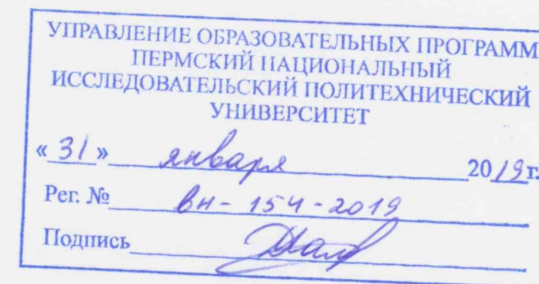 УПРАВЛЕНИЕ ОБРАЗОВАТЕЛЬНЫХ ПРОГРАММ
ПЕРМСКИЙ НАЦИОНАЛЬНЫЙ
ИССЛЕДОВАТЕЛЬСКИЙ ПОЛИТЕХНИЧЕСКИЙ
УНИВЕРСИТЕТ
«31» января 2019г.
Рег. № вн-154-2019
Подпись